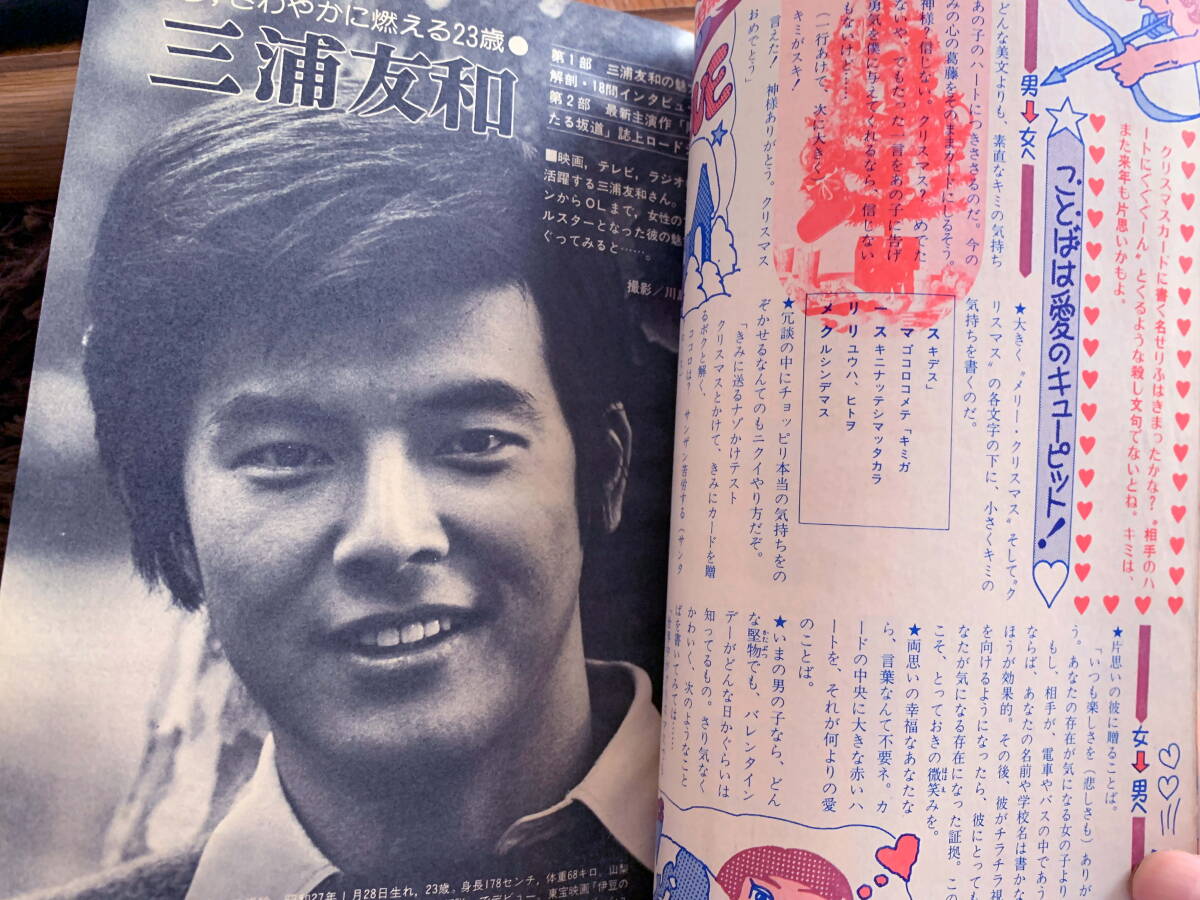 さわやかに燃える23歳●
三浦友和
第1部 三浦友和の魅
解剖・18問インタビュー
第2部 最新主演作「
たる坂道」誌上ロード
■映画，テレビ，ラジオ
活躍する三浦友和さん。
ンからOLまで，女性の
ルスターとなった彼の魅
ぐってみると……。
撮影／川
27年1月28日生れ，23歳。身長178センチ，体重68キロ。山梨
でデビュー。東宝映画「伊豆の
クリスマスカードに書く名せりふはきまったかな？〝相手のハ
ートにぐぐぐーん〟とくるような殺し文句でないとね。キミは、
また来年も片思いかもよ。
ことばは愛のキューピット！
男➡女へ
どんな美文よりも、素直なキミの気持ち
あの子のハートにつきささるのだ。今の
みの心の葛藤をそのままカードにしるそう。
神様？信じない。クリスマス？めでた
ないや。でもたった一言をあの子に告げ
勇気を僕に与えてくれるなら、信じない
もないけど……
（一行あけて、次に大きく）
キミがスキ！
言えた！神様ありがとう。クリスマス
おめでとう」
★大きく〝メリー・クリスマス〟そして〝ク
リスマス〟の各文字の下に、小さくキミの
気持ちを書くのだ。
スキデス」
マゴコロコメテ「キミガ
ースキニナッテシマッタカラ
リリユウハ、ヒトヲ
メクルシンデマス
★冗談の中にチョッピリ本当の気持ちをの
ぞかせるなんてのもニクイやり方だぞ。
「きみに送るナゾかけテスト
クリスマスとかけて、きみにカードを贈
るボクと解く、
ココロは？ サンザン苦労する（サンタ
女➡男へ
★片思いの彼に贈ることば。
「いつも楽しさを（悲しさも）ありが
う。あなたの存在が気になる女の子より
もし、相手が、電車やバスの中であう
ならば、あなたの名前や学校名は書かな
ほうが効果的。その後、彼がチラチラ視
を向けるようになったら、彼にとっても
なたが気になる存在になった証拠。この
こそ、とっておきの微笑みを。
★両思いの幸福なあなたな
ら、言葉なんて不要ネ。カ
ードの中央に大きな赤いハ
ートを、それが何よりの愛
のことば。
★いまの男の子なら、どん
な堅物でも、バレンタイン
デーがどんな日かぐらいは
知ってるもの。さり気なく
かわいく、次のようなこと
ばを書いてみては……